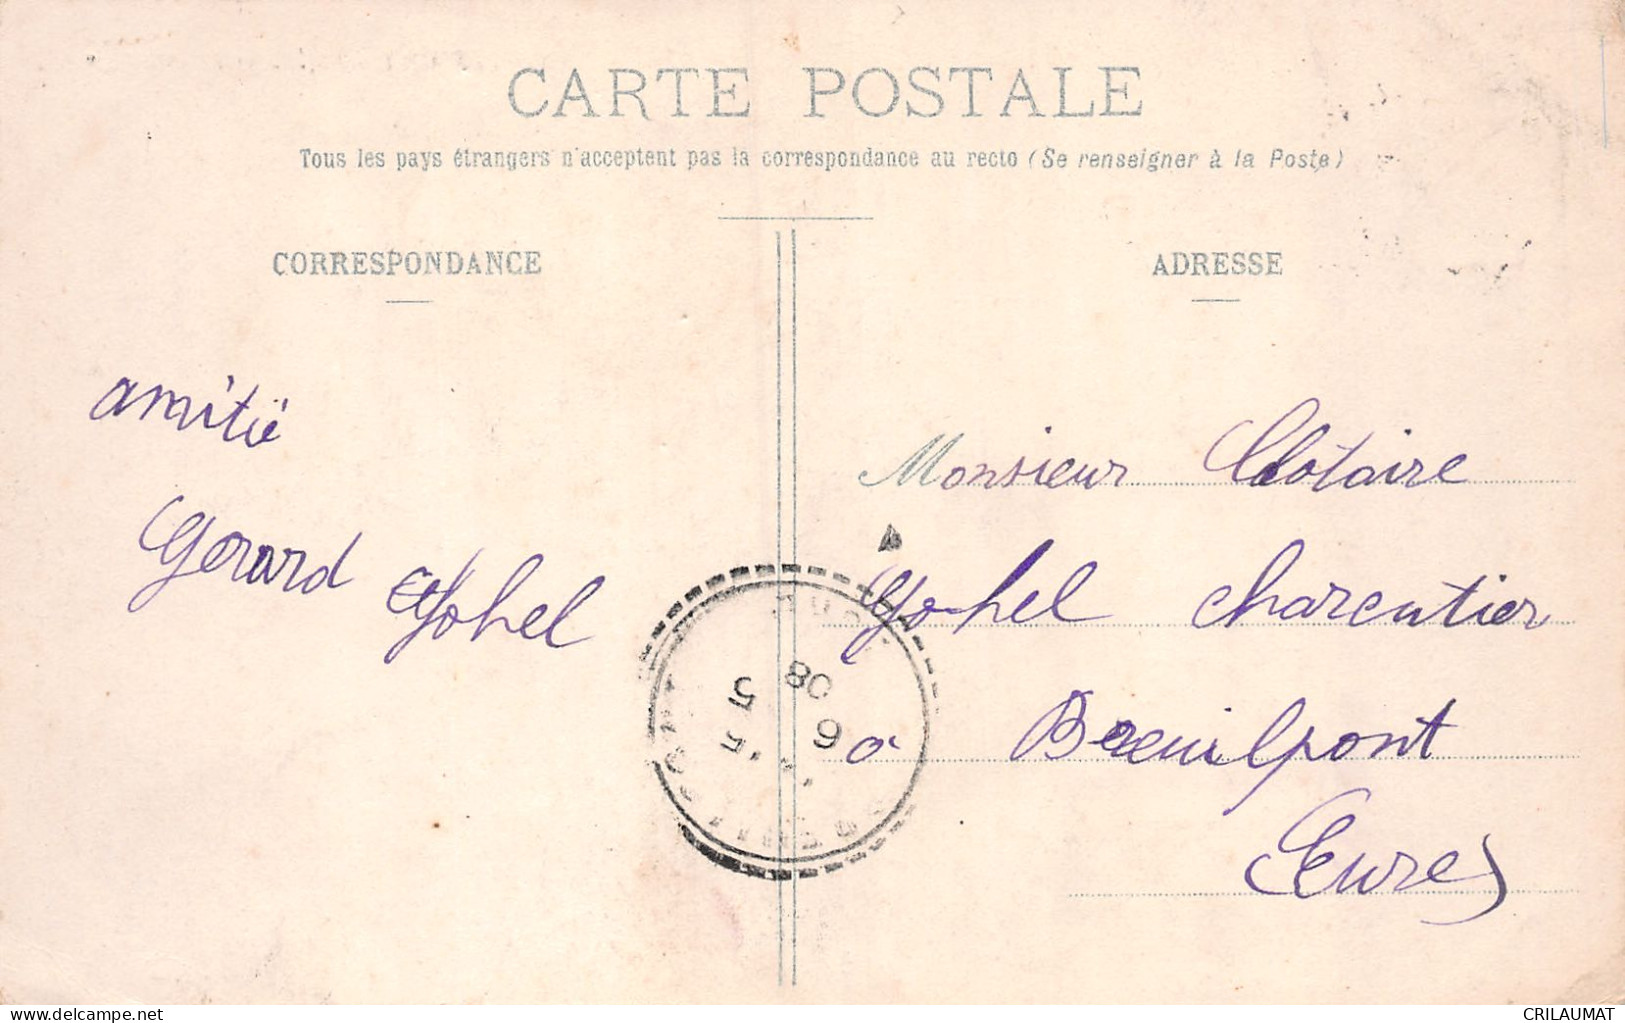 CARTE POSTALE
Tous les pays étrangers n'acceptent pas la correspondance au recto (Se renseigner à la Poste)
CORRESPONDANCE
ADRESSE
amitié
Gerard Gohel
Monsieur Clotaire
Gohel charentier
à Breuilpont
Eure
08
5
6
www.delcampe.net
CRILAUMAT